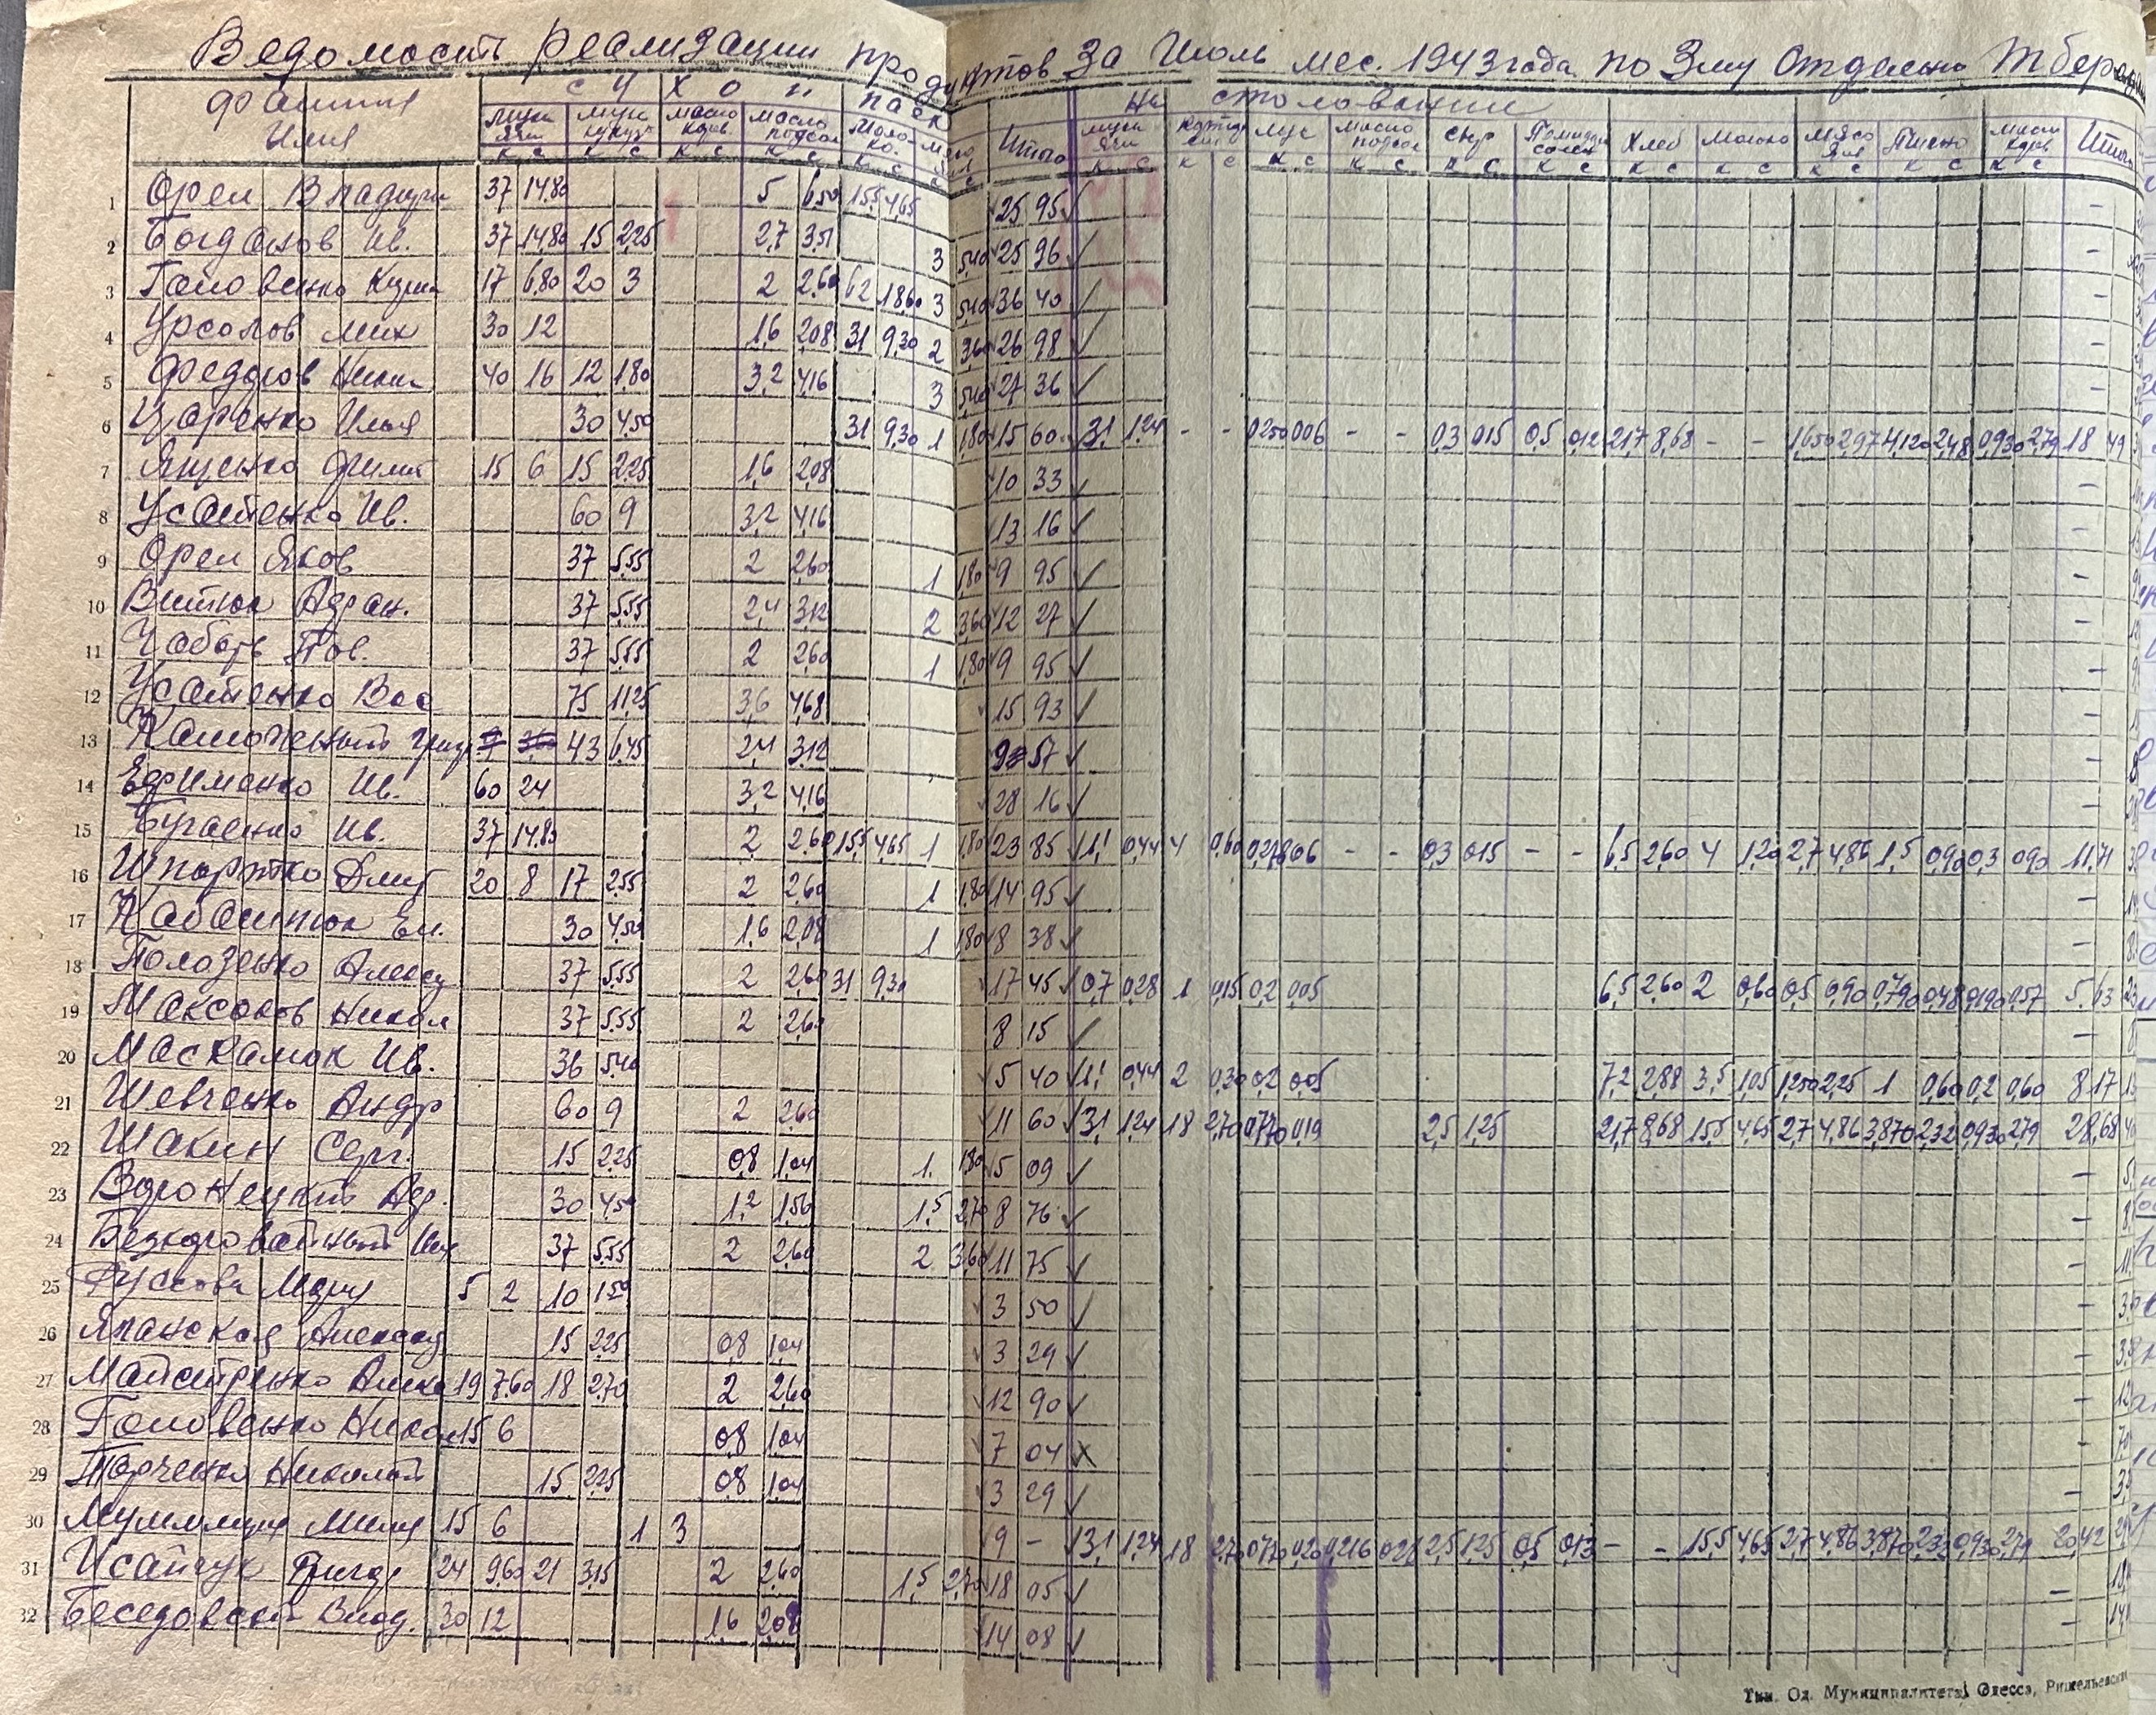 Ведомость реализации продуктов за Июль мес. 1943 года по 3му Отделению
Фамилия Имя
Сухой паек
На столовании
мука яч. мука кукуз масло кор. масло подсол Молоко Мясо Итого мука яч картоф лук масло подсол сыр Помидор солен Хлеб Молоко Мясо Пшено масло кор Итого
к с к с к с к с к с к с к с к с к с к с к с к с к с к с к с к с к с
1 Орел Владими 37 14.80 5 6.50 15.5 4.65 25 95
2 Богданов Ив. 37 14.80 15 2.25 2.7 3.51 3 5.40 25 96
3 Головенко Кузьма 17 6.80 20 3 2 2.60 62 18.60 3 5.40 36 40
4 Урсолов Мих 30 12 1.6 2.08 31 9.30 2 3.60 26 98
5 Федоров Никит 40 16 12 1.80 3.2 4.16 3 5.40 27 36
6 Царенко Илья 30 4.50 31 9.30 1 1.80 15 60 3.1 1.24 - - 0.250 0.06 - - 0.3 0.15 0.5 0.12 21.7 8.68 - - 1.650 2.97 4.120 2.48 0.930 2.79 18 49
7 Яценко Филип 15 6 15 2.25 1.6 2.08 10 33
8 Усатенко Ив. 60 9 3.2 4.16 13 16
9 Орел Яков 37 5.55 2 2.60 1 1.80 9 95
10 Витюк Адриан. 37 5.55 2.4 3.12 2 3.60 12 27
11 Чабарь Пав. 37 5.55 2 2.60 1 1.80 9 95
12 Усатенко Вас 75 11.25 3.6 4.68 15 93
13 Григ 43 6.45 2.4 3.12 9 57
14 Ефименко Ив. 60 24 3.2 4.16 28 16
15 Бугаенко Ив. 37 14.80 2 2.60 15.5 4.65 1 1.80 23 85 1.1 0.44 4 0.60 0.06 - - 0.3 0.15 - - 6.5 2.60 4 1.20 2.7 4.86 1.5 0.90 0.3 0.90 11.71
16 Шпортко Дмит 20 8 17 2.55 2 2.60 1 1.80 14 95
17 Кабашнюк Ем. 30 4.50 1.6 2.08 1 1.80 8 38
18 Полозенко Алексу 37 5.55 2 2.60 31 9.30 17 45 0.7 0.28 1 0.15 0.2 0.05 6.5 2.60 2 0.60 0.5 0.90 0.790 0.48 0.190 0.57 5.63
19 Максаков Никол 37 5.55 2 2.60 8 15
20 Маскалюк Ив. 36 5.40 5 40 1.1 0.44 2 0.30 0.2 0.05 7.2 2.88 3.5 1.05 1.250 2.25 1 0.60 0.2 0.60 8 17
21 Шевченко Андр 60 9 2 2.60 11 60 3.1 1.24 18 2.70 0.770 0.19 2.5 1.25 21.7 8.68 15.5 4.65 2.7 4.86 3.870 2.32 0.930 2.79 28.68
22 Шакин Серг. 15 2.25 0.8 1.04 1. 1.80 5 09
23 30 4.50 1.2 1.56 1.5 2.70 8 76
24 37 5.55 2 2.60 2 3.60 11 75
25 Русова Мария 5 2 10 1.50 3 50
26 Японская Александ 15 2.25 0.8 1.04 3 29
27 Майстренко Алекс 19 7.60 18 2.70 2 2.60 12 90
28 Головенко Никол 15 6 0.8 1.04 7 04
29 Торченко Николай 15 2.25 0.8 1.04 3 29
30 15 6 1 3 9 - 3.1 1.24 18 2.70 0.770 0.20 0.216 0.28 2.5 1.25 0.5 0.13 - - 15.5 4.65 2.7 4.86 3.870 2.32 0.930 2.79 20.42
31 Исайчук 24 9.60 21 3.15 2 2.60 1.5 2.70 18 05
32 Беседовский Влад. 30 12 1.6 2.08 14 08
Тип. Од. Муниципалитета, Одесса, Ришельевская